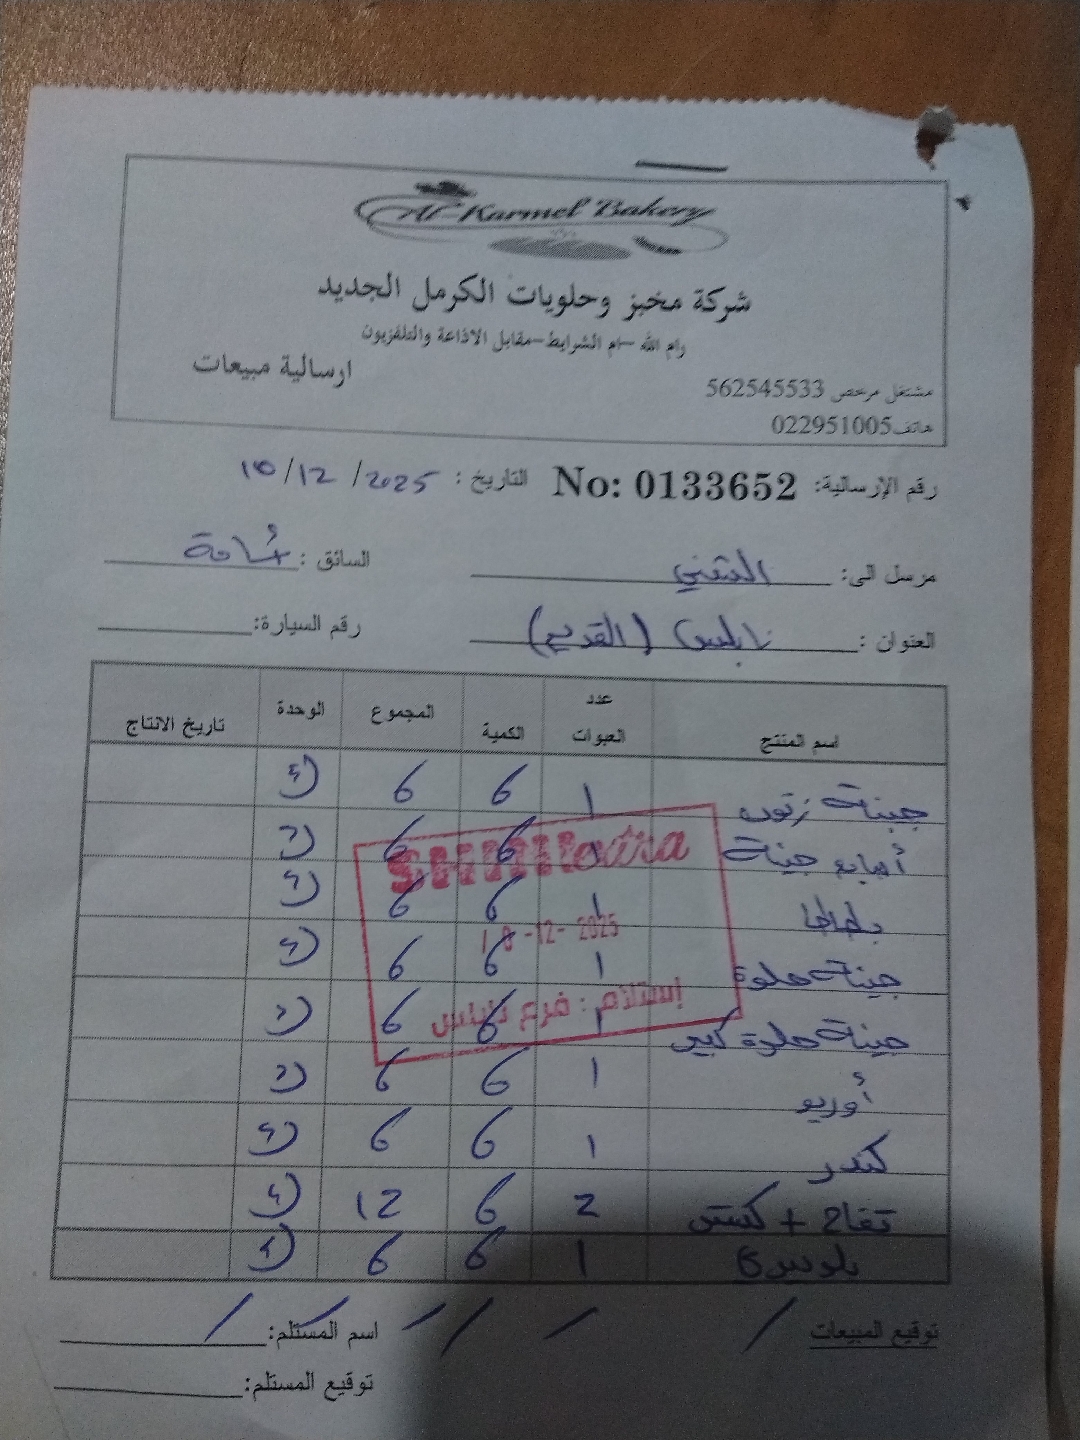 Al-Karmel Bakery
شركة مخبز وحلويات الكرمل الجديد
رام الله -ام الشرايط-مقابل الاذاعة والتلفزيون
ارسالية مبيعات
مشتغل مرخص 562545533
هاتف022951005
رقم الإرسالية: No: 0133652 التاريخ: 10/12/2025
مرسل الى: السائق: أسامة
العنوان: نابلس (القديم) رقم السيارة:
اسم المنتج عدد العبوات الكمية المجموع الوحدة تاريخ الانتاج
جبنة زتون 1 6 6
أصابع جبنة 6 6
1 6 6
جبنة حلوة 1 6 6
جبنة حلوة كبير 1 6 6
أوريو 1 6 6
كندر 1 6 6
تفاح + 2 6 12
1 6 6
10-12-2025
إستلام : فرع نابلس
توقيع المبيعات اسم المستلم:
توقيع المستلم: